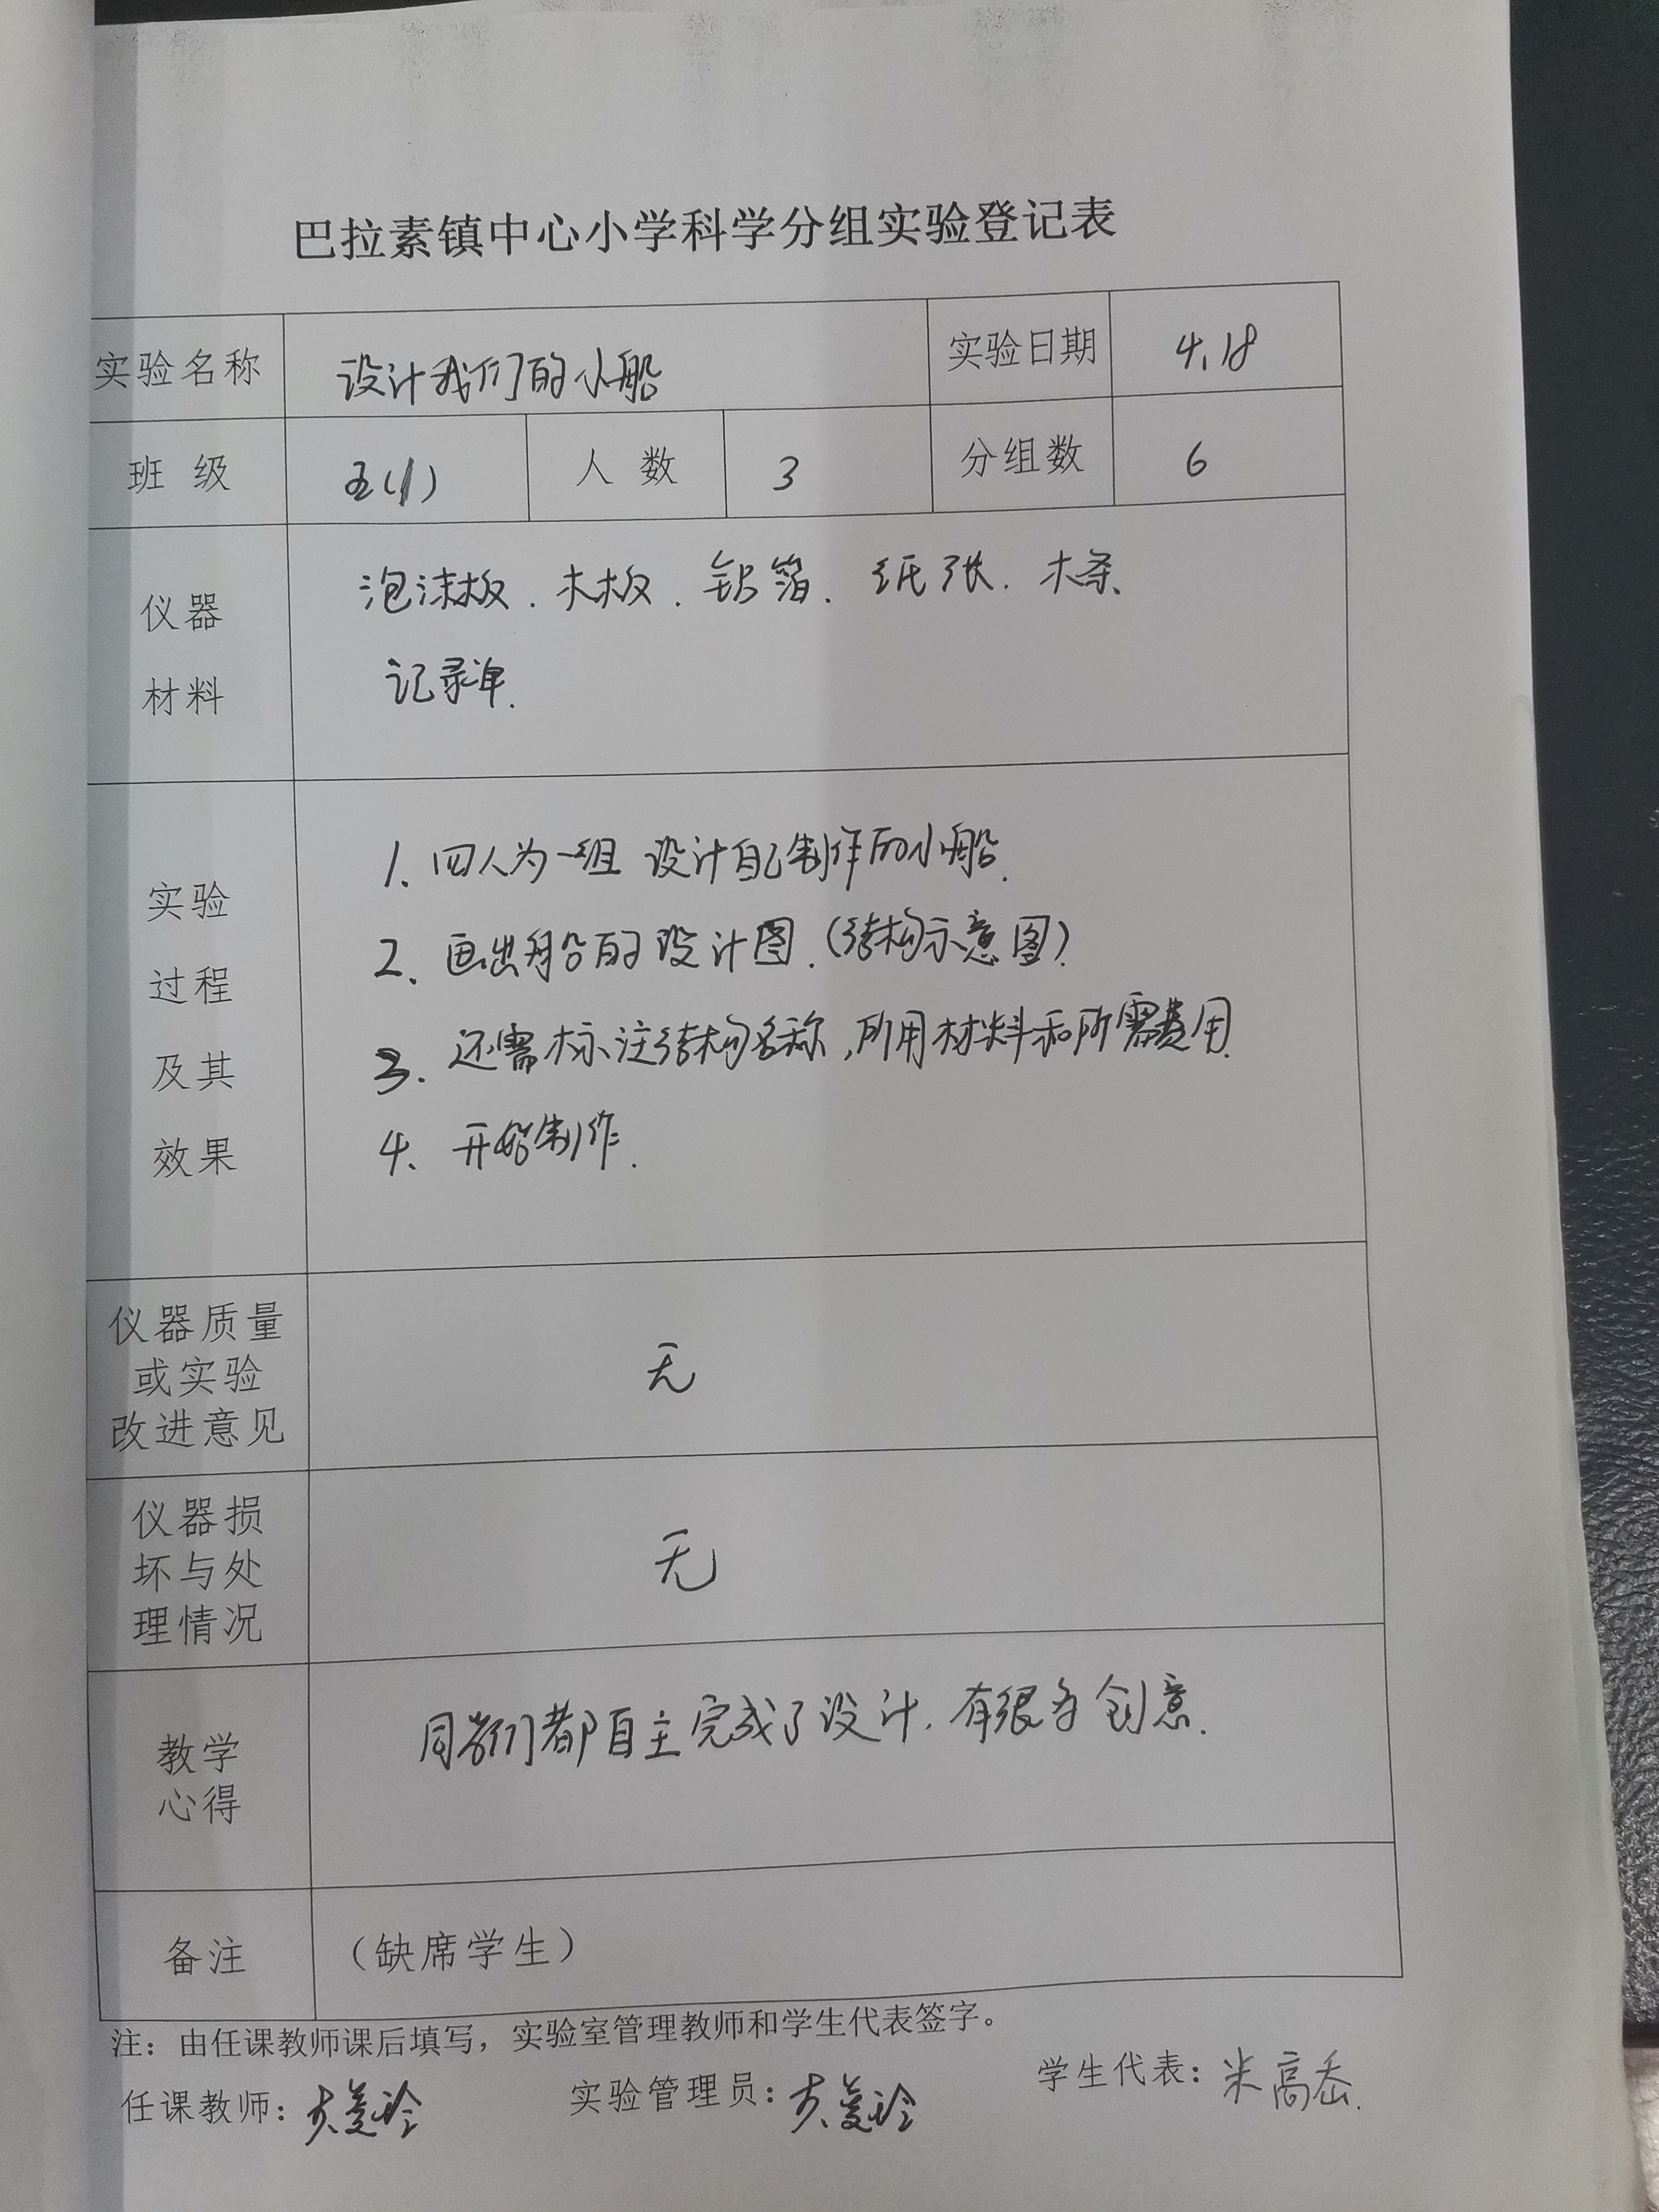 巴拉素镇中心小学科学分组实验登记表
实验名称 设计我们的小船 实验日期 4.18
班 级 五(1) 人 数 3 分组数 6
仪器
材料
泡沫板.木板.铝箔.纸张.木条、
记录单.
实验
过程
及其
效果
1、四人为一组 设计自己制作的小船.
2、画出船的设计图.(结构示意图)
3.还需标注结构名称,所用材料和所需费用.
4、开始制作.
仪器质量
或实验
改进意见
无
仪器损
坏与处
理情况
无
教学
心得
同学们都自主完成了设计.有很多创意.
备注 (缺席学生)
注：由任课教师课后填写，实验室管理教师和学生代表签字。
任课教师： 实验管理员： 学生代表：米高岳.